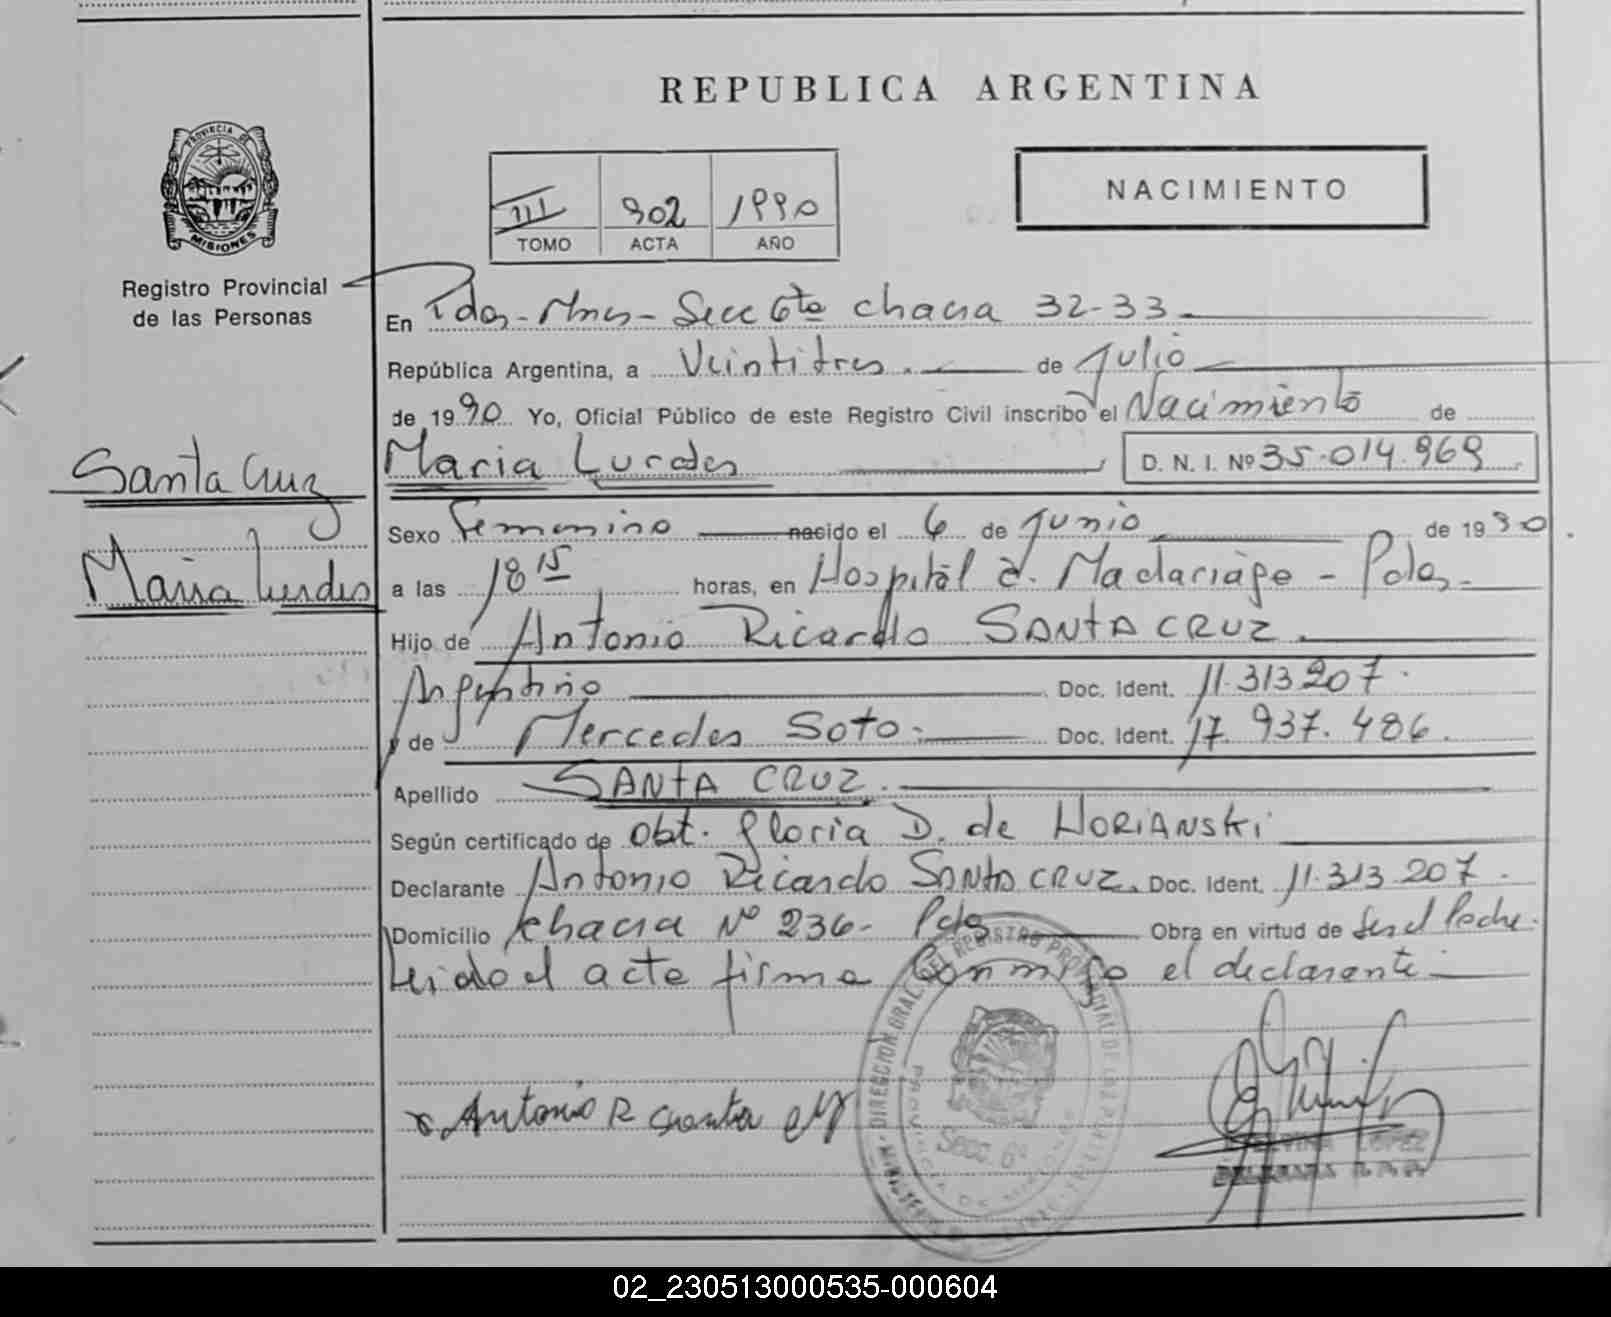 REPUBLICA ARGENTINA
PROVINCIA DE MISIONES
Registro Provincial
de las Personas
III 902 1990
TOMO ACTA AÑO
NACIMIENTO
En Pdas-Mnes-Secc 6ta chacra 32-33
República Argentina, a Veintitres de Julio
de 1990 Yo, Oficial Público de este Registro Civil inscribo el Nacimiento de
Maria Lurdes D. N. I. Nº 35.014.969
Santa Cruz
Maria Lurdes
Sexo Femenino nacido el 6 de Junio de 1990
a las 18 15 horas, en Hospital R. Madariaga - Pdas
Hijo de Antonio Ricardo SANTA CRUZ
Argentino Doc. Ident. 11.313.207.
y de Mercedes Soto Doc. Ident. 17.937.486.
Apellido SANTA CRUZ.
Según certificado de Obt. Gloria D. de HORIANSKI
Declarante Antonio Ricardo SANTA CRUZ. Doc. Ident. 11.313.207.
Domicilio chacra Nº 236- Pdas Obra en virtud de Ser el Padre.
Leido el acta firma conmigo el declarante
Antonio R Santa
DIRECCION GRAL. DEL REGISTRO PROVINCIAL DE LAS PERSONAS
PROVINCIA DE MISIONES
Secc. 6ª
LOPEZ
DELEGADA
02_230513000535-000604